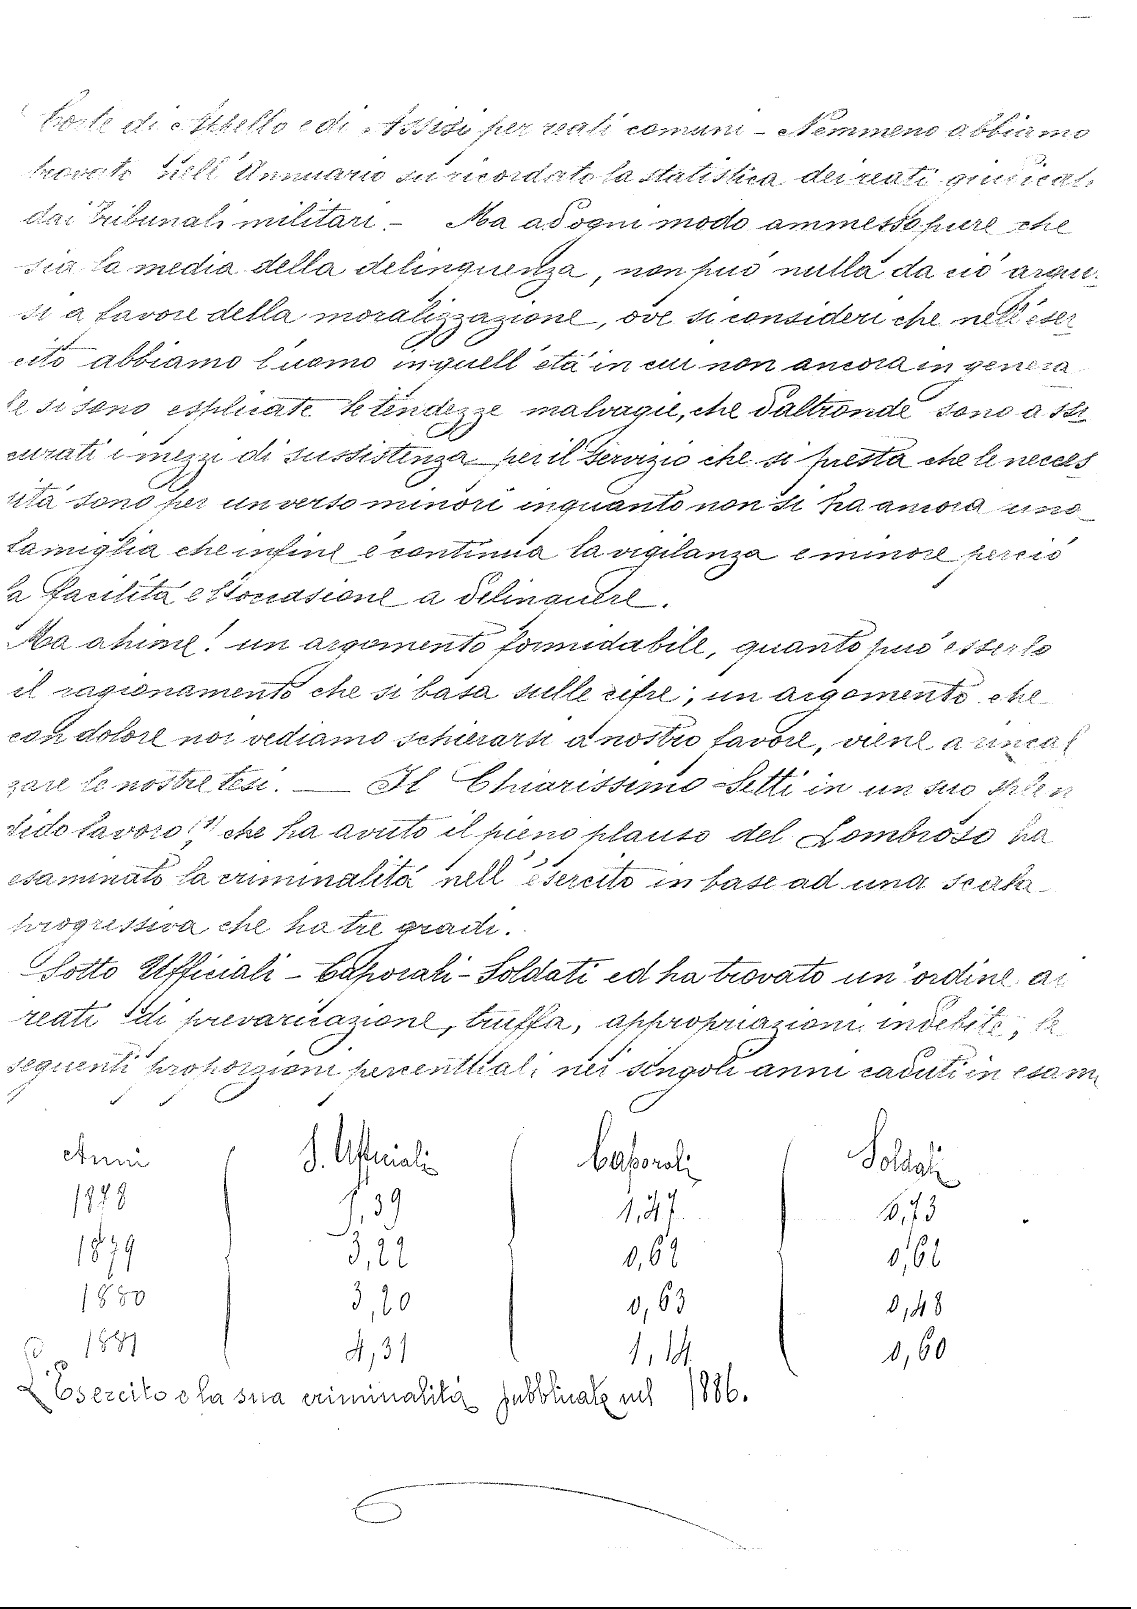 Corte di Appello e di Assisi per reati comuni – Nemmeno abbiamo
trovato nell'Annuario su ricordato la statistica dei reati giudicati
dai Tribunali militari. – Ma ad ogni modo ammesso pure che
sia la media della delinquenza, non può nulla da ciò arguir
si a favore della moralizzazione, ove si consideri che nell'eser
cito abbiamo l'uomo in quell'età in cui non ancora in genera
le si sono esplicate le tendezze malvagie, che d'altronde sono assi
curati i mezzi di sussistenza per il servizio che si presta che le neces
sità sono per un verso minori in quanto non si ha ancora una
famiglia che infine è continua la vigilanza e minore perciò
la facilità e l'occasione a delinquere.
Ma ahimé! un argomento formidabile, quanto può esserlo
il ragionamento che si basa sulle cifre; un argomento che
con dolore noi vediamo schierarsi a nostro favore, viene a rincal
zare le nostre tesi. — Il Chiarissimo Setti in un suo splen
dido lavoro (1), che ha avuto il pieno plauso del Lombroso ha
esaminato la criminalità nell'esercito in base ad una scala
progressiva che ha tre gradi.
Sotto Ufficiali – Caporali – Soldati ed ha trovato un'ordine ai
reati di prevaricazione, truffa, appropriazioni indebite, le
seguenti proporzioni percenttali nei singoli anni caduti in esam
Anni S. Ufficiali Caporali Soldati
1878 ,39 1,47 0,73
1879 3,22 0,62 0,62
1880 3,20 0,63 0,48
1881 4,31 1,14 0,60
L'Esercito e la sua criminalità pubblicate nel 1886.